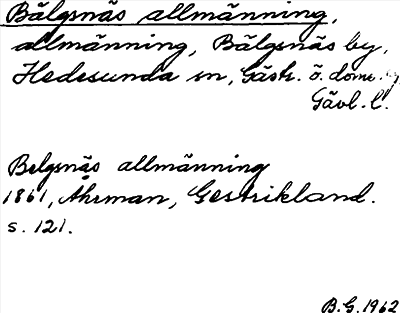 Bälgsnäs allmänning,
allmänning, Bälgsnäs by,
Hedesunda sn, Gästr. ö. doms.
Gävl. l.
Belgsnäs allmänning
1861, Åhrman, Gestrikland.
s. 121.
B.G. 1962